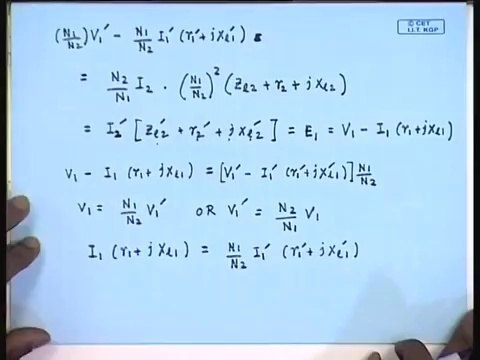 © CET
I.I.T. KGP
(N1/N2) V1′ − N1/N2 I1′ (r1′ + j xl1′)
= N2/N1 I2 · (N1/N2)² (Zl2 + r2 + j xl2)
= I2′ [ Zl2′ + r2′ + j xl2′ ] = E1 = V1 − I1 (r1 + j xl1)
V1 − I1 (r1 + j xl1) = [V1′ − I1′ (r1′ + j xl1′)] N1/N2
V1 = N1/N2 V1′ OR V1′ = N2/N1 V1
I1 (r1 + j xl1) = N1/N2 I1′ (r1′ + j xl1′)